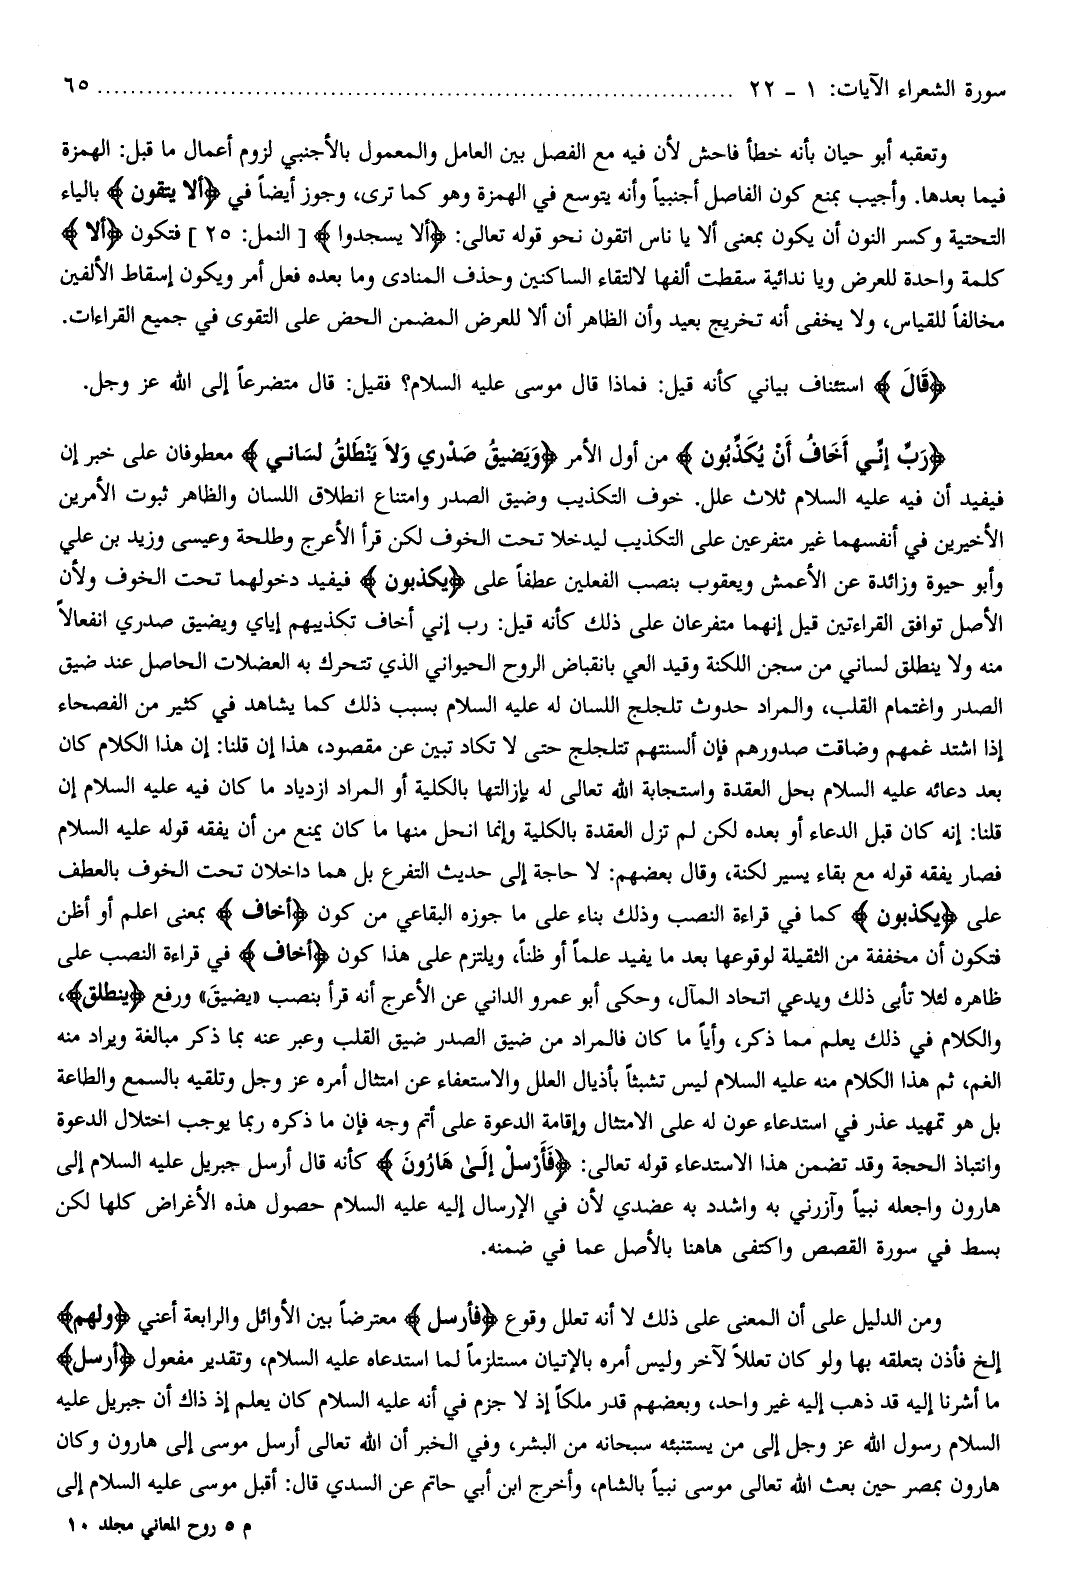 سورة الشعراء الآيات: ١ - ٢٢ ................................................................ ٦٥
وتعقبه أبو حيان بأنه خطأ فاحش لأن فيه مع الفصل بين العامل والمعمول بالأجنبي لزوم أعمال ما قبل: الهمزة
فيما بعدها. وأجيب بمنع كون الفاصل أجنبياً وأنه يتوسع في الهمزة وهو كما ترى، وجوز أيضاً في ﴿ألا يتقون﴾ بالياء
التحتية وكسر النون أن يكون بمعنى ألا يا ناس اتقون نحو قوله تعالى: ﴿ألا يسجدوا﴾ [ النمل: ٢٥ ] فتكون ﴿ألا﴾
كلمة واحدة للعرض ويا ندائية سقطت ألفها لالتقاء الساكنين وحذف المنادى وما بعده فعل أمر ويكون إسقاط الألفين
مخالفاً للقياس، ولا يخفى أنه تخريج بعيد وأن الظاهر أن ألا للعرض المضمن الحض على التقوى في جميع القراءات.
﴿قَالَ﴾ استئناف بياني كأنه قيل: فماذا قال موسى عليه السلام؟ فقيل: قال متضرعاً إلى الله عز وجل.
﴿رَبِّ إِنِّي أَخَافُ أَنْ يُكَذِّبُون﴾ من أول الأمر ﴿وَيَضيقُ صَدْري وَلاَ يَنْطَلقُ لسَاني﴾ معطوفان على خبر إن
فيفيد أن فيه عليه السلام ثلاث علل. خوف التكذيب وضيق الصدر وامتناع انطلاق اللسان والظاهر ثبوت الأمرين
الأخيرين في أنفسهما غير متفرعين على التكذيب ليدخلا تحت الخوف لكن قرأ الأعرج وطلحة وعيسى وزيد بن علي
وأبو حيوة وزائدة عن الأعمش ويعقوب بنصب الفعلين عطفاً على ﴿يكذبون﴾ فيفيد دخولهما تحت الخوف ولأن
الأصل توافق القراءتين قيل إنهما متفرعان على ذلك كأنه قيل: رب إني أخاف تكذيبهم إياي ويضيق صدري انفعالاً
منه ولا ينطلق لساني من سجن اللكنة وقيد العي بانقباض الروح الحيواني الذي تتحرك به العضلات الحاصل عند ضيق
الصدر واغتمام القلب، والمراد حدوث تلجلج اللسان له عليه السلام بسبب ذلك كما يشاهد في كثير من الفصحاء
إذا اشتد غمهم وضاقت صدورهم فإن ألسنتهم تتلجلج حتى لا تكاد تبين عن مقصود، هذا إن قلنا: إن هذا الكلام كان
بعد دعائه عليه السلام بحل العقدة واستجابة الله تعالى له بإزالتها بالكلية أو المراد ازدياد ما كان فيه عليه السلام إن
قلنا: إنه كان قبل الدعاء أو بعده لكن لم تزل العقدة بالكلية وإنما انحل منها ما كان يمنع من أن يفقه قوله عليه السلام
فصار يفقه قوله مع بقاء يسير لكنة، وقال بعضهم: لا حاجة إلى حديث التفرع بل هما داخلان تحت الخوف بالعطف
على ﴿يكذبون﴾ كما في قراءة النصب وذلك بناء على ما جوزه البقاعي من كون ﴿أخاف﴾ بمعنى اعلم أو أظن
فتكون أن مخففة من الثقيلة لوقوعها بعد ما يفيد علماً أو ظناً، ويلتزم على هذا كون ﴿أخاف﴾ في قراءة النصب على
ظاهره لئلا تأبى ذلك ويدعي اتحاد المآل، وحكى أبو عمرو الداني عن الأعرج أنه قرأ بنصب «يضيقَ» ورفع ﴿ينطلق﴾،
والكلام في ذلك يعلم مما ذكر، وأياً ما كان فالمراد من ضيق الصدر ضيق القلب وعبر عنه بما ذكر مبالغة ويراد منه
الغم، ثم هذا الكلام منه عليه السلام ليس تشبثاً بأذيال العلل والاستعفاء عن امتثال أمره عز وجل وتلقيه بالسمع والطاعة
بل هو تمهيد عذر في استدعاء عون له على الامتثال وإقامة الدعوة على أتم وجه فإن ما ذكره ربما يوجب اختلال الدعوة
وانتباذ الحجة وقد تضمن هذا الاستدعاء قوله تعالى: ﴿فَأَرْسلْ إلَىٰ هَارُونَ﴾ كأنه قال أرسل جبريل عليه السلام إلى
هارون واجعله نبياً وآزرني به واشدد به عضدي لأن في الإرسال إليه عليه السلام حصول هذه الأغراض كلها لكن
بسط في سورة القصص واكتفى هاهنا بالأصل عما في ضمنه.
ومن الدليل على أن المعنى على ذلك لا أنه تعلل وقوع ﴿فأرسل﴾ معترضاً بين الأوائل والرابعة أعني ﴿ولهم﴾
إلخ فأذن بتعلقه بها ولو كان تعللاً لآخر وليس أمره بالإتيان مستلزماً لما استدعاه عليه السلام، وتقدير مفعول ﴿أرسل﴾
ما أشرنا إليه قد ذهب إليه غير واحد، وبعضهم قدر ملكاً إذ لا جزم في أنه عليه السلام كان يعلم إذ ذاك أن جبريل عليه
السلام رسول الله عز وجل إلى من يستنبئه سبحانه من البشر، وفي الخبر أن الله تعالى أرسل موسى إلى هارون وكان
هارون بمصر حين بعث الله تعالى موسى نبياً بالشام، وأخرج ابن أبي حاتم عن السدي قال: أقبل موسى عليه السلام إلى
م ٥ روح المعاني مجلد ١٠